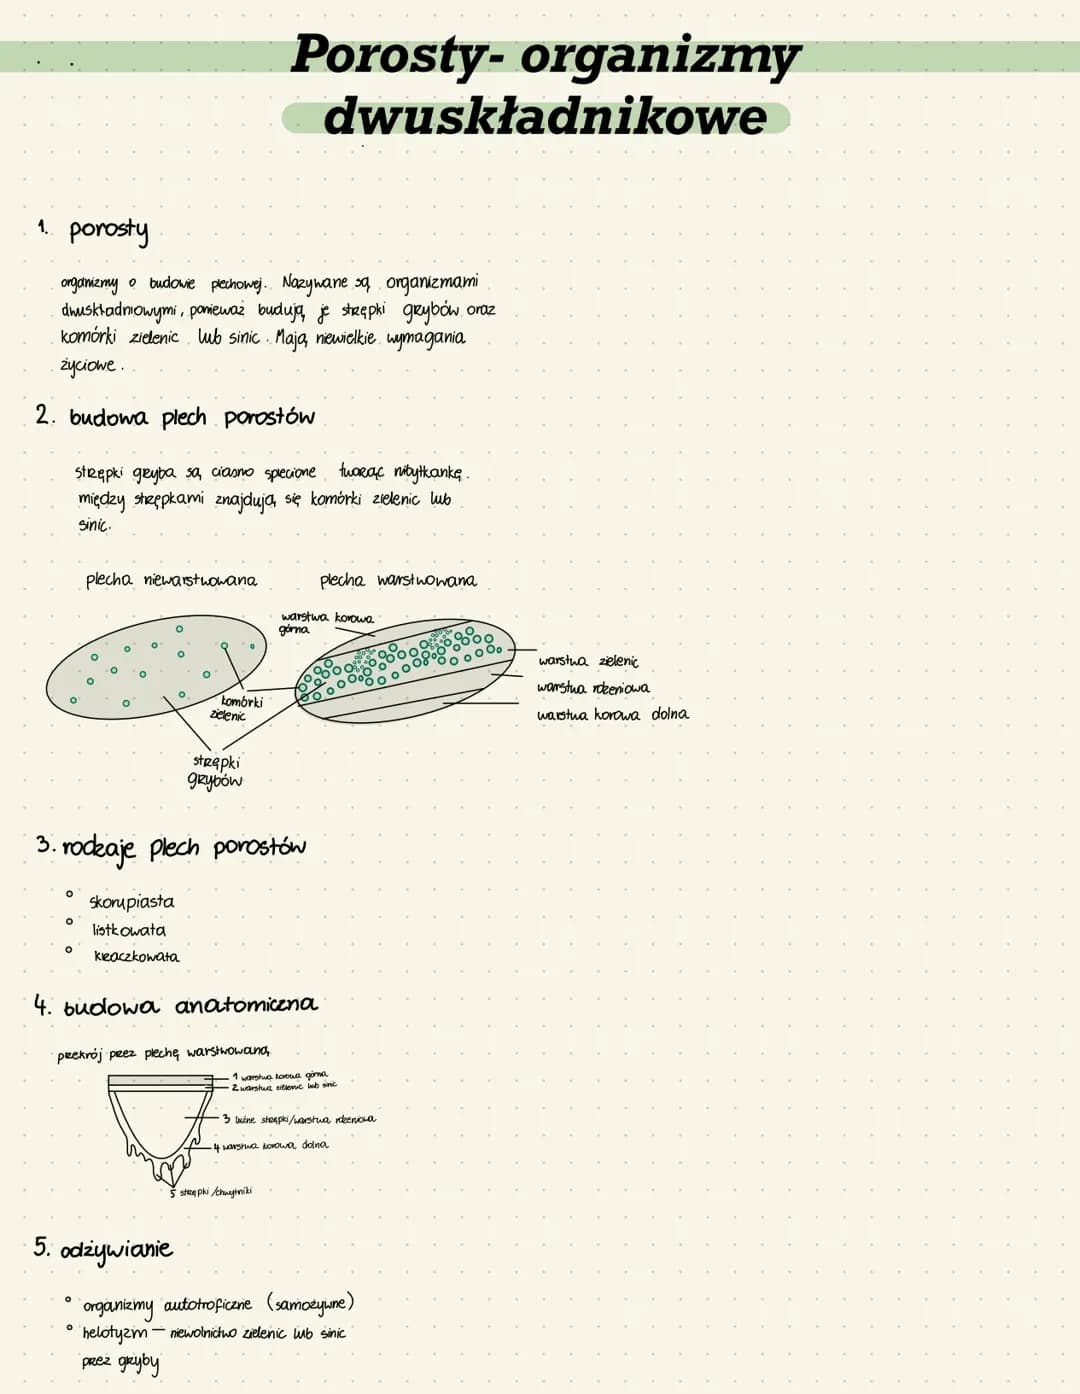 Porosty- organizmy
dwuskładnikowe
1. porosty
organizmy o budowie plechowej. Nazywane są organizmami
dwuskładniowymi, ponieważ budują je strzępki grzybów oraz
komórki zielenic lub sinic. Mają niewielkie wymagania
życiowe.
2. budowa plech porostów
strzępki grzyba są ciasno splecione tworząc nibytkankę.
między strzępkami znajdują się komórki zielenic lub
sinic.
plecha niewarstwowana
plecha warstwowana
warstwa korowa
górna
komórki
zielenic
strzępki
grzybów
warstwa zielenic
warstwa rdzeniowa
warstwa korowa dolna
3. rodzaje plech porostów
° skorupiasta
° listkowata
° krzaczkowata
4. budowa anatomiczna
przekrój przez plechę warstwowaną
1 warstwa korowa górna
2 warstwa zielenic lub sinic
3 luźne strzępki/warstwa rdzeniowa
4 warstwa korowa dolna
5 strzępki /chwytniki
5. odżywianie
° organizmy autotroficzne (samożywne)
° helotyzm — niewolnictwo zielenic lub sinic
przez grzyby